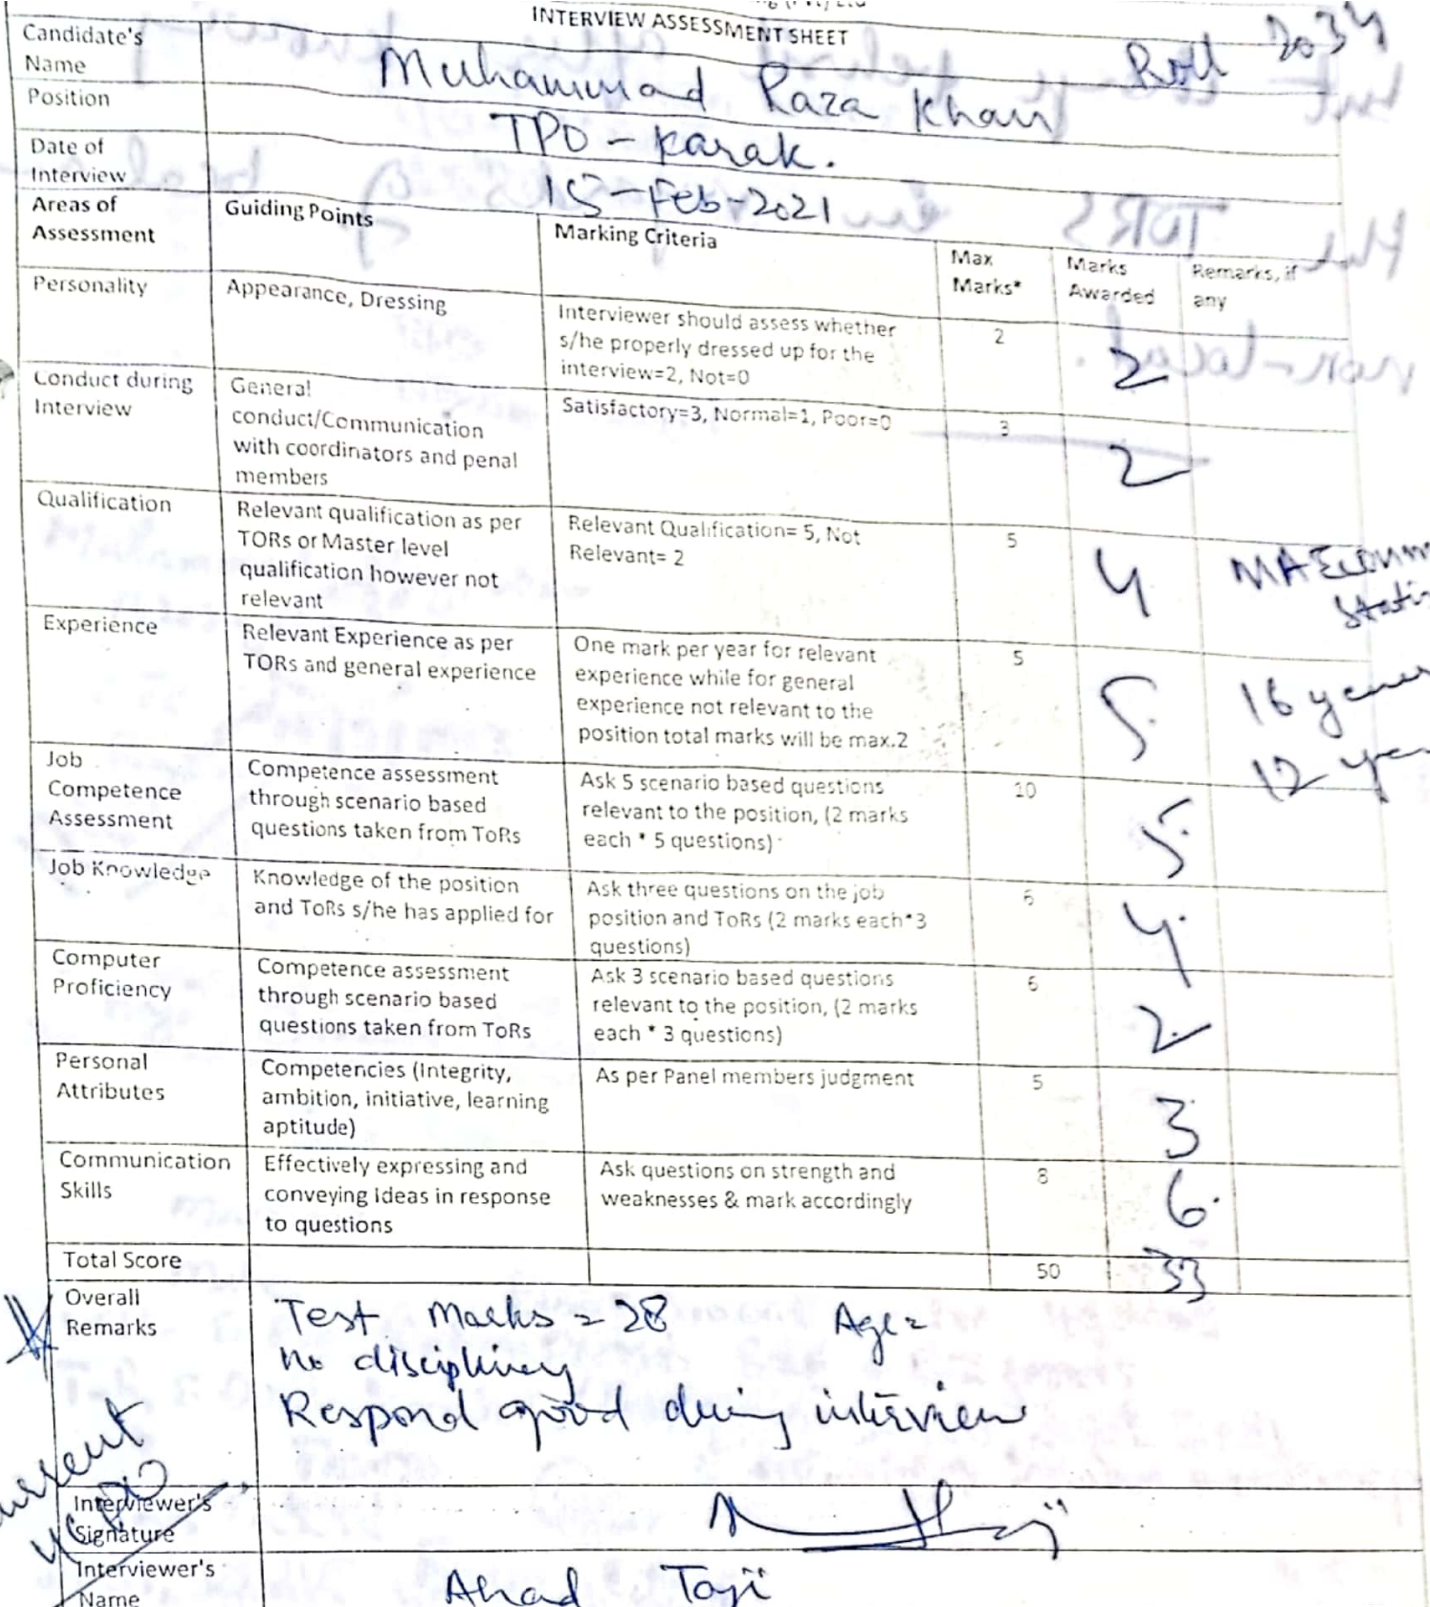 INTERVIEW ASSESSMENT SHEET
Roll 2034
Candidate's Name
Muhammad Raza Khan
Position
TPO - Karak.
Date of Interview
Feb-2021
Areas of Assessment
Guiding Points
Marking Criteria
Max Marks*
Marks Awarded
Remarks, if any
Personality
Appearance, Dressing
Interviewer should assess whether
s/he properly dressed up for the
interview=2, Not=0
2
2
Conduct during
Interview
General
conduct/Communication
with coordinators and penal
members
Satisfactory=3, Normal=1, Poor=0
3
2
Qualification
Relevant qualification as per
TORs or Master level
qualification however not
relevant
Relevant Qualification= 5, Not
Relevant= 2
5
4
MA
Experience
Relevant Experience as per
TORs and general experience
One mark per year for relevant
experience while for general
experience not relevant to the
position total marks will be max.2
5
5
16 year
12 year
Job
Competence
Assessment
Competence assessment
through scenario based
questions taken from ToRs
Ask 5 scenario based questions
relevant to the position, (2 marks
each * 5 questions)
10
5
Job Knowledge
Knowledge of the position
and ToRs s/he has applied for
Ask three questions on the job
position and ToRs (2 marks each*3
questions)
6
4
Computer
Proficiency
Competence assessment
through scenario based
questions taken from ToRs
Ask 3 scenario based questions
relevant to the position, (2 marks
each * 3 questions)
6
2
Personal
Attributes
Competencies (Integrity,
ambition, initiative, learning
aptitude)
As per Panel members judgment
5
3
Communication
Skills
Effectively expressing and
conveying Ideas in response
to questions
Ask questions on strength and
weaknesses & mark accordingly
8
6
Total Score
50
33
Overall
Remarks
Test Marks = 28 Age =
no
Respond good during interview
Interviewer's
Signature
Interviewer's
Name
Ahad Taji